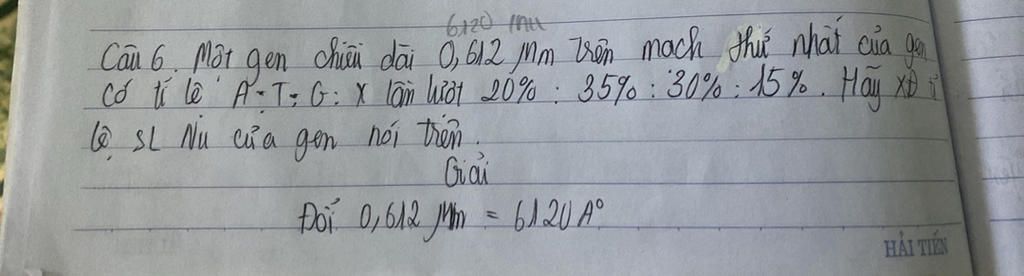 6120 mu
Câu 6. Một gen chiều dài 0,612 Mm Trên mạch thứ nhất của gen
có tỉ lệ A:T:G:X lần lượt 20% : 35% : 30% : 15%. Hãy XĐ tỉ
lệ, SL Nu của gen nói trên.
Giải
Đổi 0,612 Mm = 6120 A°
HẢI TIẾN